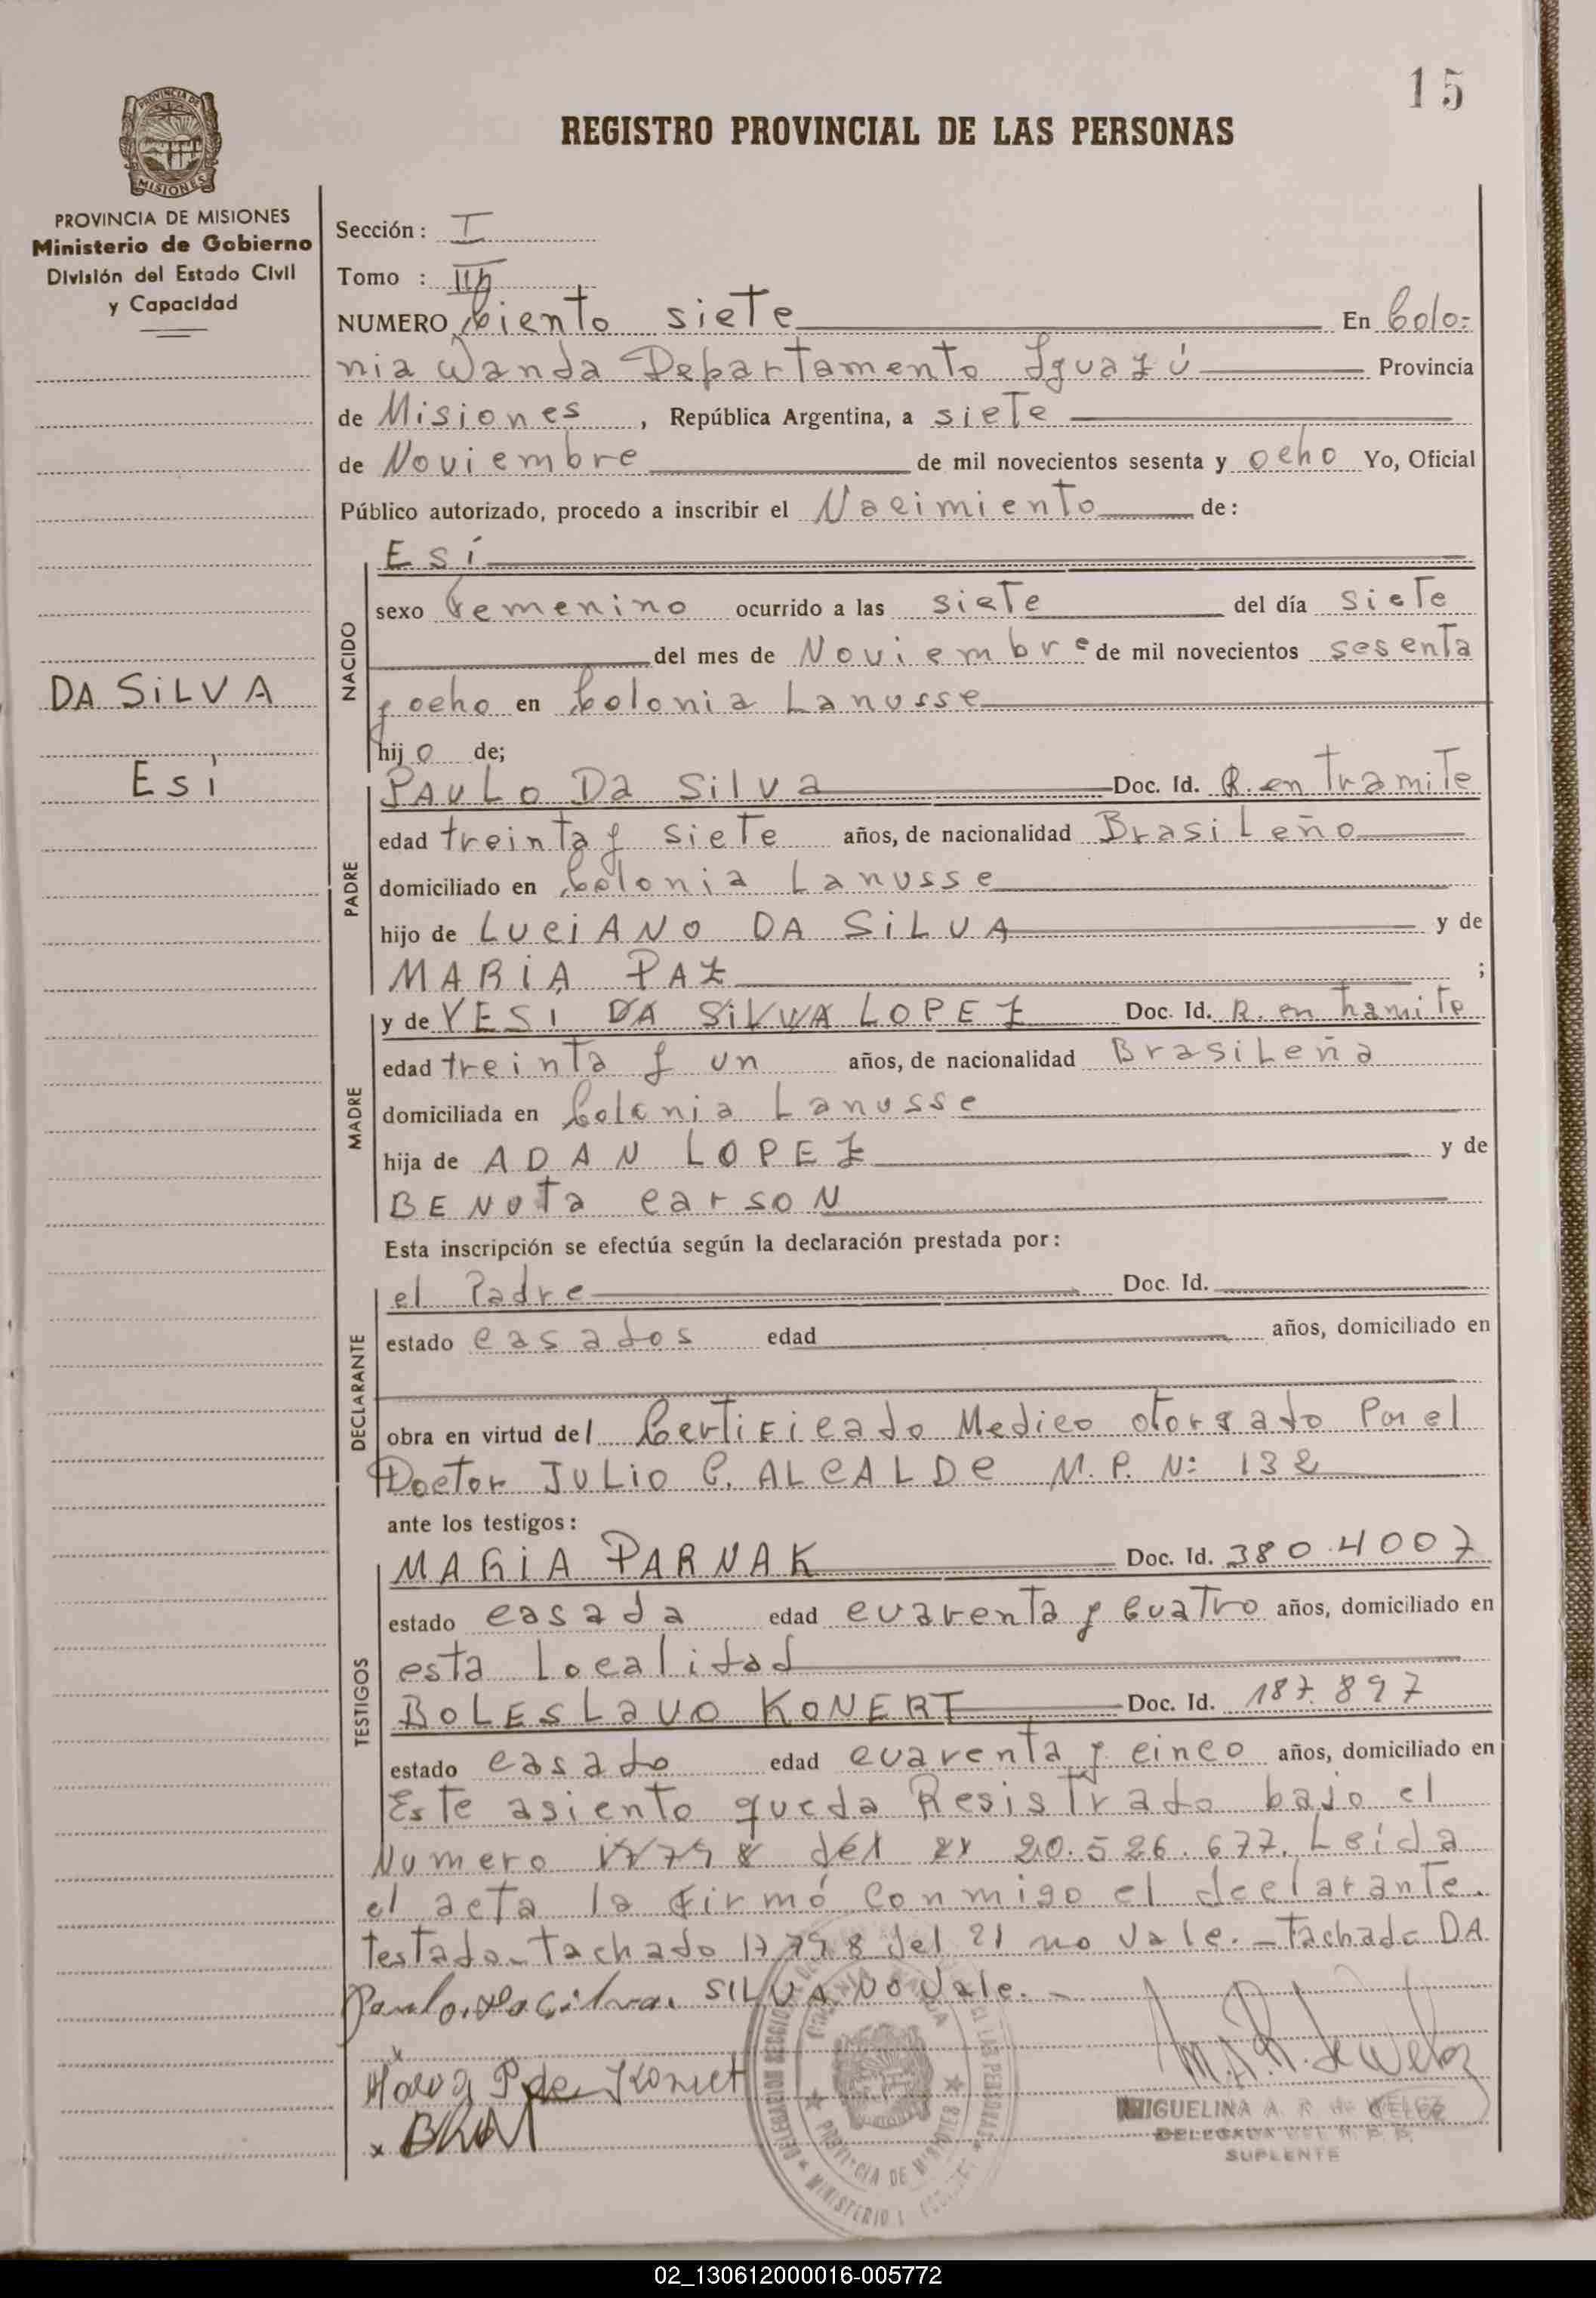 15
REGISTRO PROVINCIAL DE LAS PERSONAS
PROVINCIA DE MISIONES
Ministerio de Gobierno
División del Estado Civil
y Capacidad
DA SiLVA
Esi
Sección: I
Tomo :
NUMERO Ciento siete En Colo-
nia Wanda Departamento Iguazú Provincia
de Misiones, República Argentina, a siete
de Noviembre de mil novecientos sesenta y ocho Yo, Oficial
Público autorizado, procedo a inscribir el Nacimiento de:
NACIDO
Esi
sexo Femenino ocurrido a las siete del día siete
del mes de Noviembre de mil novecientos sesenta
y ocho en Colonia Lanusse
hijo de;
PADRE
PAULO Da Silva Doc. Id. R. en tramite
edad treinta y siete años, de nacionalidad BrasiLeño
domiciliado en Colonia Lanusse
hijo de LUCiANO DA SiLVA y de
MARiA PAZ ;
MADRE
y de YESi DA SiLVA LOPEZ Doc. Id. R. en tramite
edad treinta y un años, de nacionalidad BrasiLeña
domiciliada en Colonia Lanusse
hija de ADAN LOPEZ y de
BENUTa carsoN
Esta inscripción se efectúa según la declaración prestada por:
DECLARANTE
el Padre Doc. Id.
estado casados edad años, domiciliado en
obra en virtud del Certificado Medico otorgado Por el
Doctor JULiO C. ALCALDe M.P. N: 132
ante los testigos:
TESTIGOS
MARiA PARNAK Doc. Id. 380.4007
estado casada edad cuarenta y cuatro años, domiciliado en
esta Localidad
BOLESLaVO KONERT Doc. Id. 187.897
estado casado edad cuarenta y cinco años, domiciliado en
Este asiento queda Registrado bajo el
Numero 17798 del 21 20.526.677. Leida
el acta la firmó conmigo el declarante.
testado-tachado 17798 del 21 no vale.-tachado DA
SILVA NO vale.-
Paulo da Silva.
P de Konert
MIGUELINA A. R. de WELEZ
DELEGADA DEL R. P. P.
SUPLENTE
PROVINCIA DE MISIONES
02_130612000016-005772